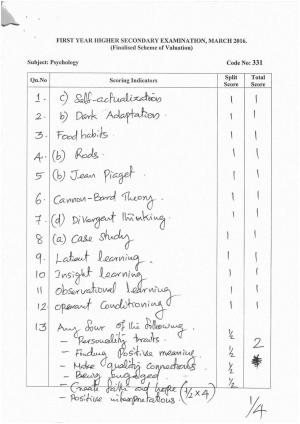 FIRST YEAR HIGHER SECONDARY EXAMINATION, MARCH 2016.
(Finalised Scheme of Valuation)
Subject: Psychology Code No: 331
Qn.No Scoring Indicators Split Score Total Score
1. c) Self-actualization 1 1
2. b) Dark Adaptation. 1 1
3. Food habits. 1 1
4. (b) Rods. 1 1
5 (b) Jean Piaget. 1 1
6. Cannon-Bard Theory. 1 1
7. (d) Divergent thinking. 1 1
8 (a) Case Study 1 1
9. Latent learning. 1 1
10 Insight learning 1 1
11 Observational learning 1 1
12 operant Conditioning 1 1
13 Any four of the following.
- Personality traits. ½ 2
- Finding positive meaning. ½
- Make quality connections ½
- Being engaged ½
- Create faith and hope (½ x 4)
- Positive interpretations.
1/4